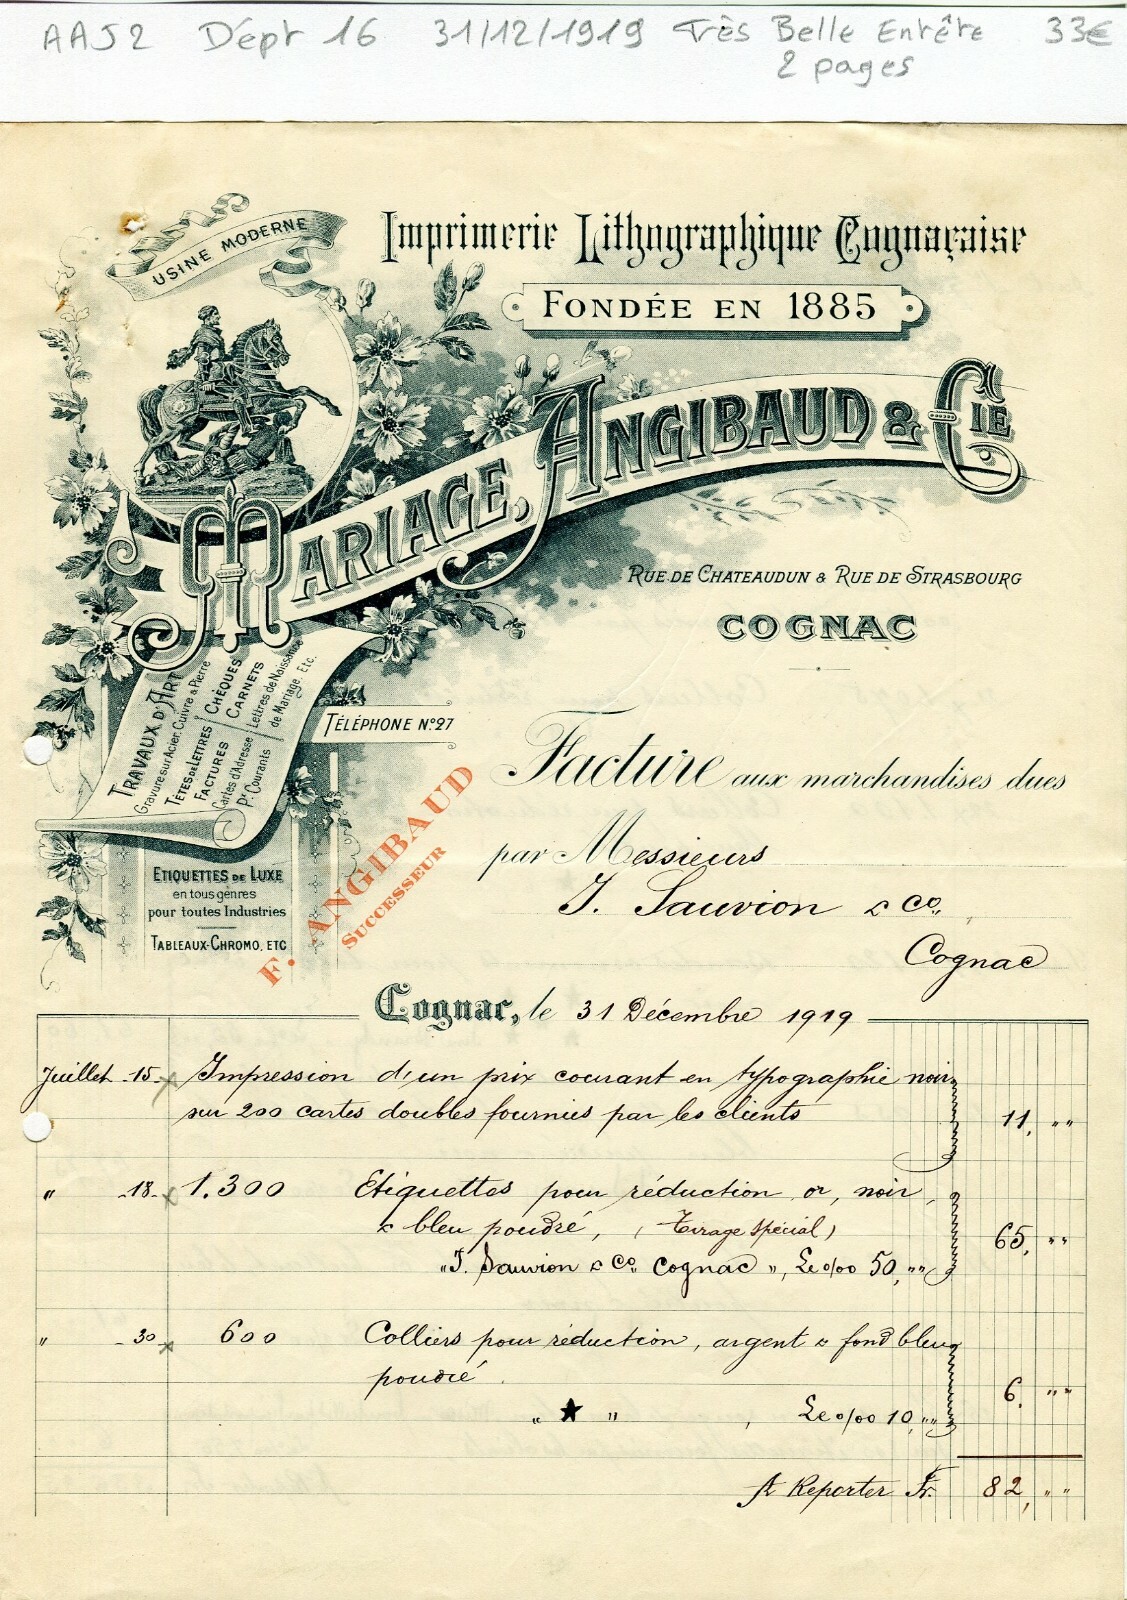 AAJ2 Dépt 16 31/12/1919 Très Belle Entête 33€
2 pages
USINE MODERNE
Imprimerie Lithographique Cognaçaise
FONDÉE EN 1885
MARIAGE, ANGIBAUD & CIE
RUE DE CHATEAUDUN & RUE DE STRASBOURG
COGNAC
TRAVAUX D'ART
Gravure sur Acier, Cuivre & Pierre
TÊTES DE LETTRES
CHÈQUES
FACTURES
CARNETS
Cartes d'Adresse
Lettres de Naissance
Px Courants
de Mariage, Etc.
TÉLÉPHONE No 27
ETIQUETTES DE LUXE
en tous genres
pour toutes Industries
TABLEAUX-CHROMO, ETC
F. ANGIBAUD
SUCCESSEUR
Facture aux marchandises dues
par Messieurs
J. Sauvion & Co.
Cognac
Cognac, le 31 Décembre 1919
Juillet -15- Impression d'un prix courant en typographie noir
sur 200 cartes doubles fournies par les clients 11, " "
" -18- 1.300 Etiquettes pour réduction or, noir,
& bleu poudré, (Tirage spécial) 65, " "
"J. Sauvion & Co. Cognac", Le o/oo 50, " "
" -30- 600 Colliers pour réduction, argent & fond bleu
poudré 6, " "
" ★ ", Le o/oo 10, " "
A Reporter Fr. 82, " "